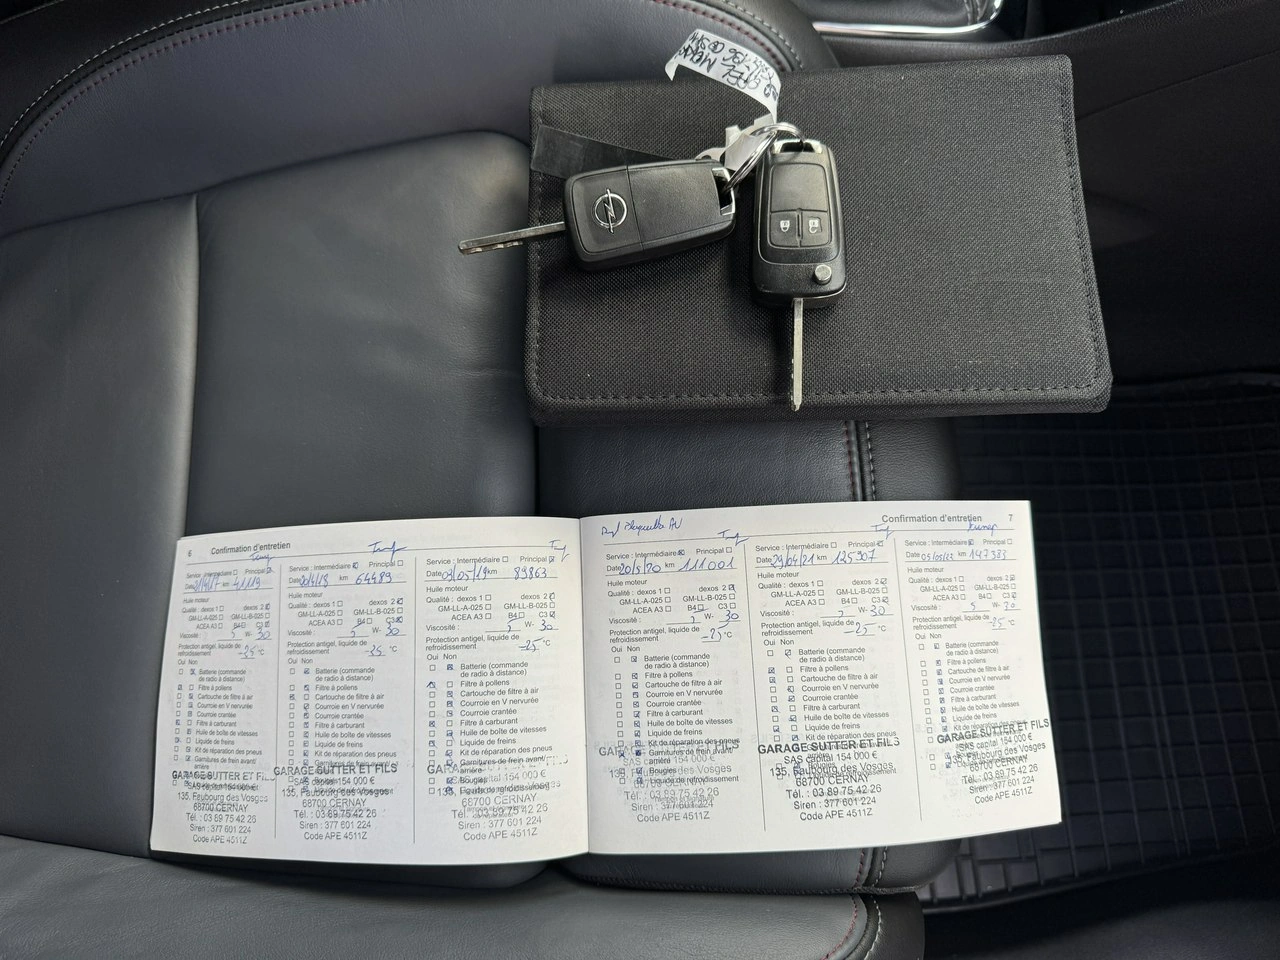 6 Confirmation d'entretien
Service : Intermédiaire Principal
km 41119
Huile moteur
Qualité : dexos 1 dexos 2
GM-LL-A-025 GM-LL-B-025
ACEA A3 B4 C3
Viscosité : 5 W- 30
Protection antigel, liquide de
refroidissement -25 °C
Oui Non
Batterie (commande
de radio à distance)
Filtre à pollens
Cartouche de filtre à air
Courroie en V nervurée
Courroie crantée
Filtre à carburant
Huile de boîte de vitesses
Liquide de freins
Kit de réparation des pneus
Garnitures de frein avant/
arrière
GARAGE SUTTER ET FILS
SAS capital 154 000 €
135, Faubourg des Vosges
68700 CERNAY
Tél. : 03 89 75 42 26
Siren : 377 601 224
Code APE 4511Z
Service : Intermédiaire Principal
km 64489
Huile moteur
Qualité : dexos 1 dexos 2
GM-LL-A-025 GM-LL-B-025
ACEA A3 B4 C3
Viscosité : 5 W- 30
Protection antigel, liquide de
refroidissement -25 °C
Oui Non
Batterie (commande
de radio à distance)
Filtre à pollens
Cartouche de filtre à air
Courroie en V nervurée
Courroie crantée
Filtre à carburant
Huile de boîte de vitesses
Liquide de freins
Kit de réparation des pneus
Garnitures de frein avant/
GARAGE SUTTER ET FILS
SAS capital 154 000 €
135, Faubourg des Vosges
68700 CERNAY
Tél. : 03 89 75 42 26
Siren : 377 601 224
Code APE 4511Z
Service : Intermédiaire Principal
Date 03/05/19 km 89863
Huile moteur
Qualité : dexos 1 dexos 2
GM-LL-A-025 GM-LL-B-025
ACEA A3 B4 C3
Viscosité : 5 W- 30
Protection antigel, liquide de
refroidissement -25 °C
Oui Non
Batterie (commande
de radio à distance)
Filtre à pollens
Cartouche de filtre à air
Courroie en V nervurée
Courroie crantée
Filtre à carburant
Huile de boîte de vitesses
Liquide de freins
Kit de réparation des pneus
Garnitures de frein avant/
arrière
Bougies
Liquide de refroidissement
68700 CERNAY
Tél. : 03 89 75 42 26
Siren : 377 601 224
Code APE 4511Z
Plaquettes AV
Confirmation d'entretien 7
Service : Intermédiaire Principal
Date 20/5/20 km 111001
Huile moteur
Qualité : dexos 1 dexos 2
GM-LL-A-025 GM-LL-B-025
ACEA A3 B4 C3
Viscosité : 5 W- 30
Protection antigel, liquide de
refroidissement -25 °C
Oui Non
Batterie (commande
de radio à distance)
Filtre à pollens
Cartouche de filtre à air
Courroie en V nervurée
Courroie crantée
Filtre à carburant
Huile de boîte de vitesses
Liquide de freins
Kit de réparation des pneus
Garnitures de frein avant/
arrière
Bougies
Liquide de refroidissement
Tél. : 03 89 75 42 26
Siren : 377 601 224
Code APE 4511Z
Service : Intermédiaire Principal
Date 29/04/21 km 125907
Huile moteur
Qualité : dexos 1 dexos 2
GM-LL-A-025 GM-LL-B-025
ACEA A3 B4 C3
Viscosité : 5 W- 30
Protection antigel, liquide de
refroidissement -25 °C
Oui Non
Batterie (commande
de radio à distance)
Filtre à pollens
Cartouche de filtre à air
Courroie en V nervurée
Courroie crantée
Filtre à carburant
Huile de boîte de vitesses
Liquide de freins
GARAGE SUTTER ET FILS
SAS capital 154 000 €
135, Faubourg des Vosges
68700 CERNAY
Tél. : 03 89 75 42 26
Siren : 377 601 224
Code APE 4511Z
Service : Intermédiaire Principal
Date 05/05/22 km 147383
Huile moteur
Qualité : dexos 1 dexos 2
GM-LL-A-025 GM-LL-B-025
ACEA A3 B4 C3
Viscosité : 5 W- 30
Protection antigel, liquide de
refroidissement -25 °C
Oui Non
Batterie (commande
de radio à distance)
Filtre à pollens
Cartouche de filtre à air
Courroie en V nervurée
Courroie crantée
Filtre à carburant
Huile de boîte de vitesses
Liquide de freins
Kit de réparation des pneus
GARAGE SUTTER ET FILS
SAS capital 154 000 €
135, Faubourg des Vosges
68700 CERNAY
Tél. : 03 89 75 42 26
Siren : 377 601 224
Code APE 4511Z